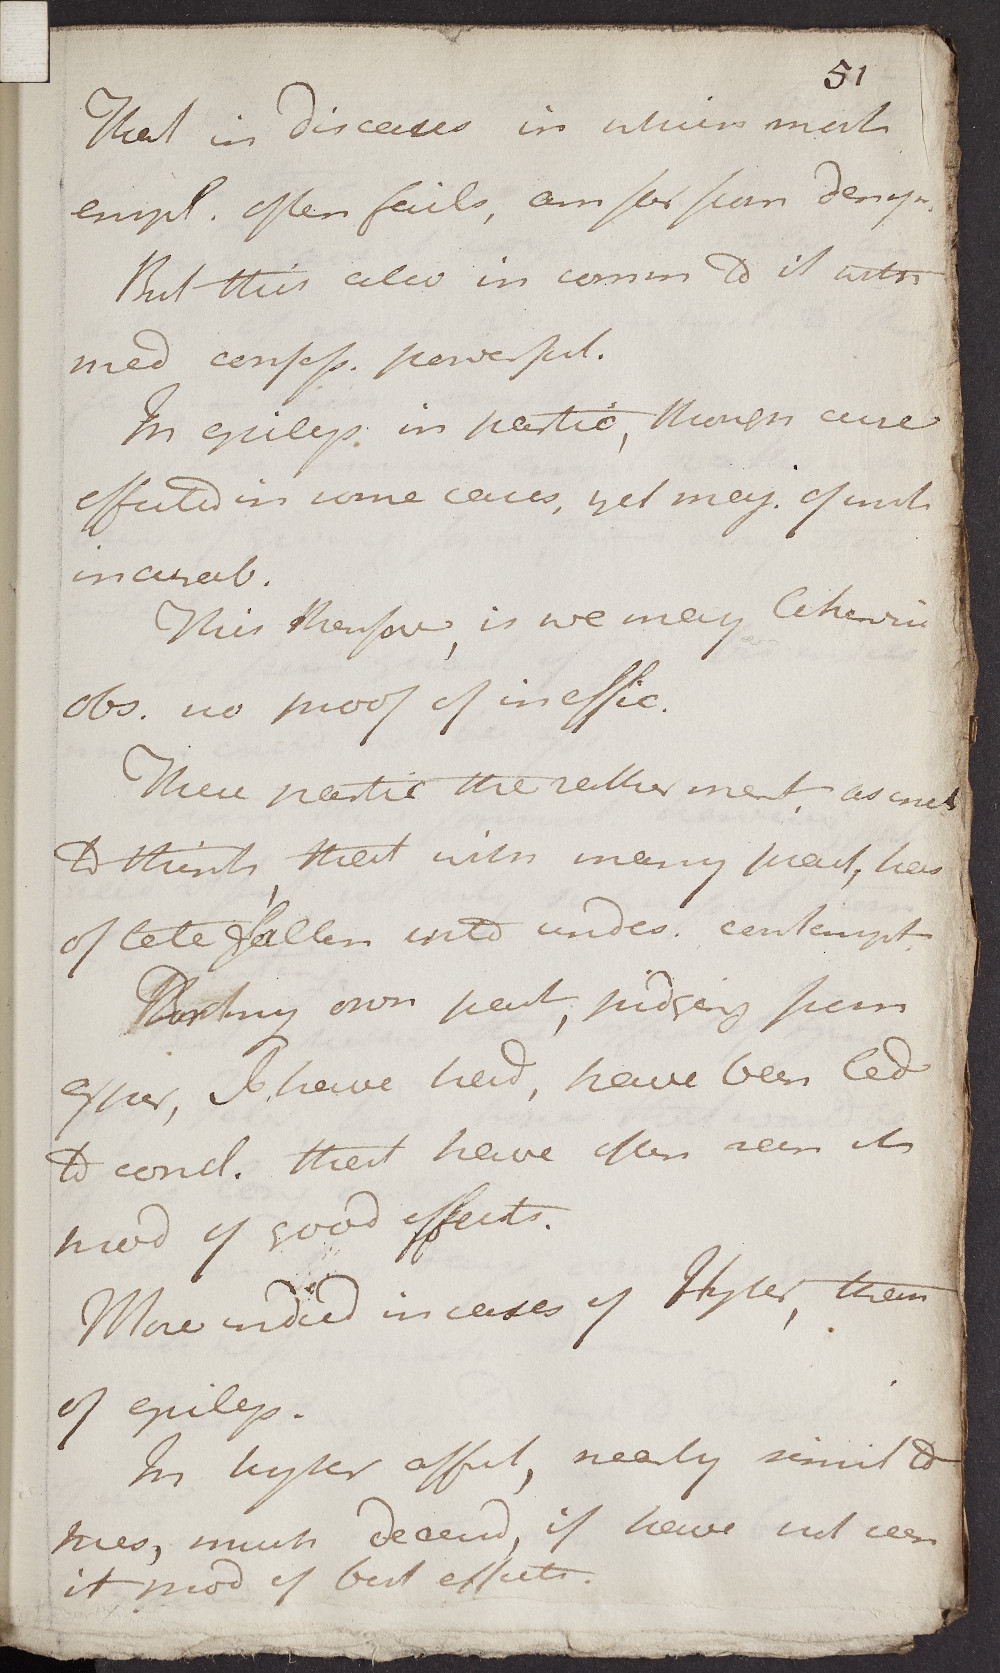 51
That in diseases in which most
empl. often fails, am far from denyn.
But this also in comm to it with
med confess. powerful.
In epilep. in partic, though cure
effected in some cases, yet maj. of such
incurab.
This therefore, is we may likewise
obs. no proof of ineffic.
These partic the rather ment. as
to think, that with many pract, has
of late fallen into undes. contempt.
For my own part, judging from
exper, I have had, have been led
to concl. that have often seen its
prod of good effects.
More indeed in cases of Hyster, than
of epilep.
In hyster affect, nearly simil to
it prod of best effects.